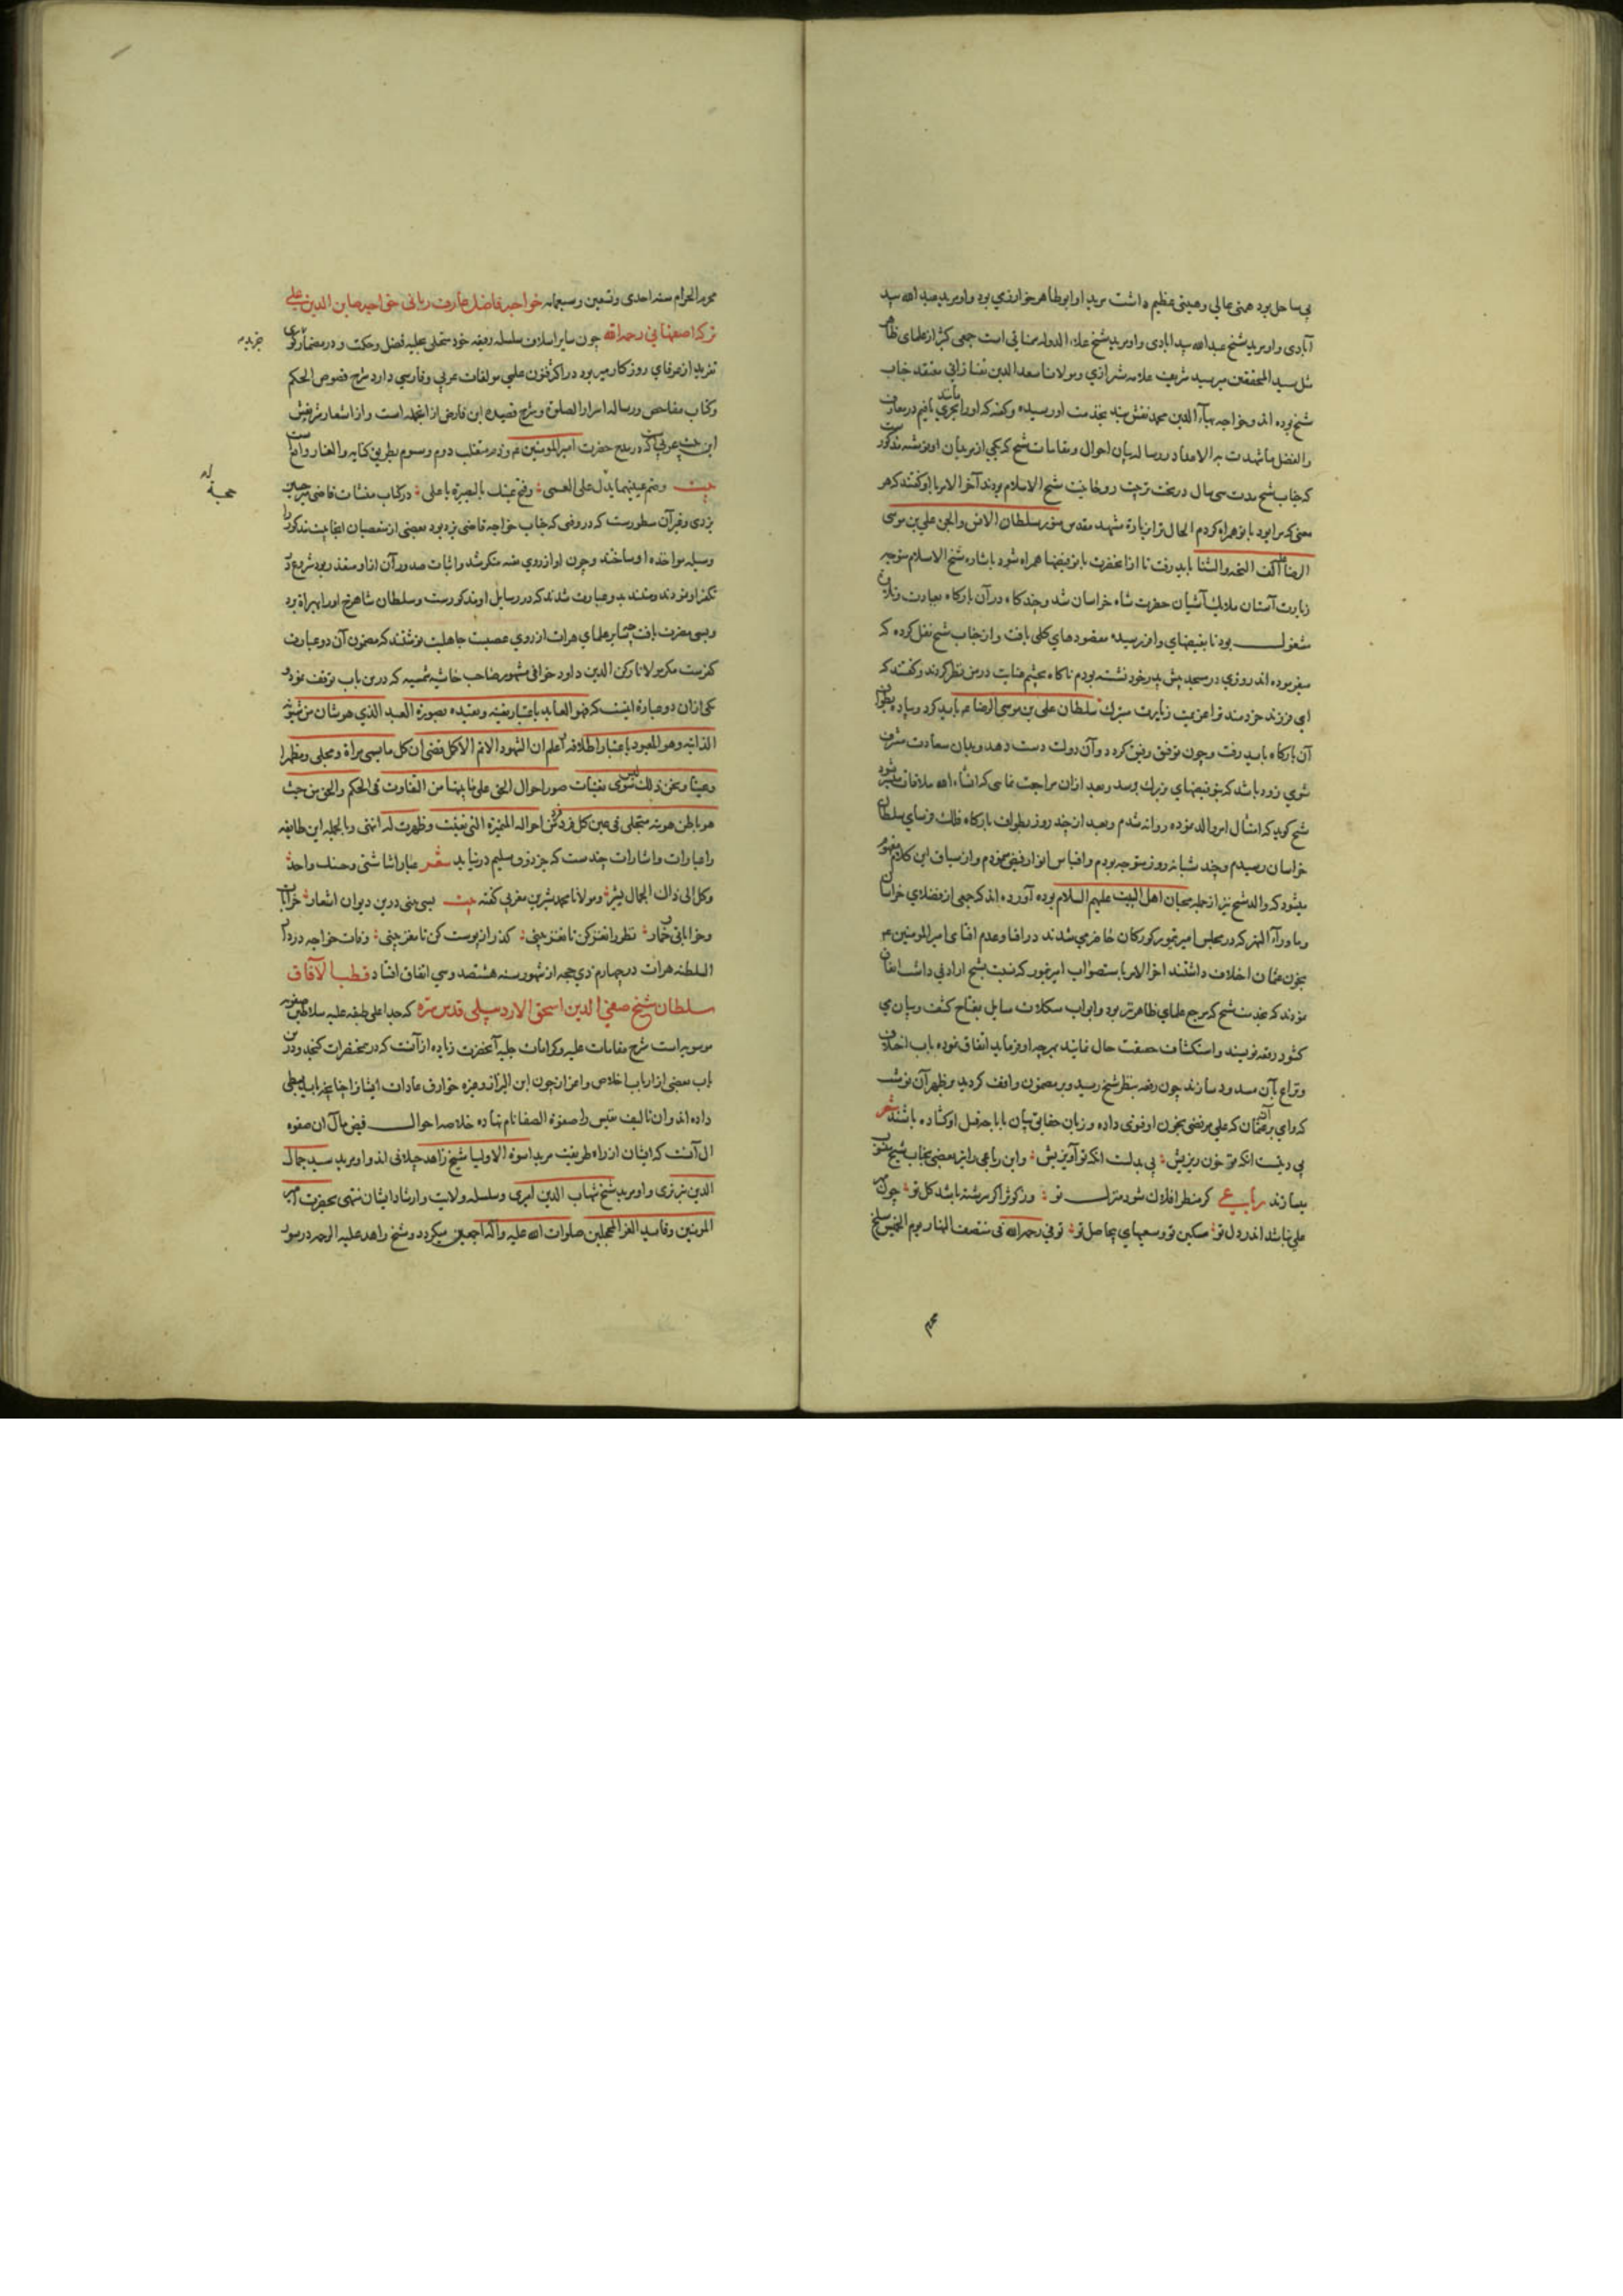 بی ساحل بود همتی عالی و هیبتی عظیم داشت مرید او ابوطاهر خوارزمی بود و او مرید عبدالله بید
آبادی و او مرید شیخ عبدالله بیدابادی و او مرید شیخ علاء الدوله سمنانی است جمعی کثیر از علمای ظاهر
مثل سید المحققین میر سید شریف علامه شیرازی و مولانا سعد الدین تفتازانی معتقد جناب
شیخ بوده اند و خواجه بهاء الدین محمد نقش بند بخدمت او رسیده و گفته که او را مانند بحری یافتم در معارف
که جناب شیخ مدت سی سال در تحت تربیت روحانیت شیخ الاسلام بودند آخر الامر با او گفتند که هر
معنی که مرا بود با تو همراه کردم الحال ترا بزیارت مشهد مقدس منور سلطان الانس والجن علی بن موسی
الرضا علیه الف التحیه والثنا باید رفت تا از آنحضرت با تو فیضها همراه شود باشاره شیخ الاسلام متوجه
زیارت آستان ملایک آشیان حضرت شاه خراسان شد و چند گاه در آن بارگاه بعبادت و تلاوت
مشغول بود تا بفیضهای وافر رسیده مقصودهای کلی یافت و از جناب شیخ نقل کرده که
میفرموده اند روزی در مسجد پیش پدر خود نشسته بودم ناگاه بچشم عنایت در من نظر کردند و گفتند که
ای فرزند خردمند ترا عزیمت زیارت متبرک سلطان علی بن موسی الرضا عم باید کرد و پیاده بطواف
آن بارگاه باید رفت و چون توفیق رفیق گردد و آن دولت دست دهد و بدان سعادت مشرف
شوی زود باشد که بتو فیضهای بزرگ برسد و بعد از آن مراجعت نمایی که انشاء الله ملاقات میسر شود
شیخ گوید که امتثال امر والد نموده روانه شدم و بعد از چند روز بطواف بارگاه فلک فرسای سلطان
خراسان رسیدم و چند شبانه روز متوجه بودم و اقتباس انوار فیض نمودم و از سیاق این کلام مفهوم
میشود که والد شیخ نیز از جمله محبان اهل البیت علیهم السلام بوده آورده اند که جمعی از فضلای خراسان
و ماوراء النهر که در مجلس امیر تیمور کورکان حاضر می شدند در افتا و عدم افتای امیر المومنین عم
بخون عثمان اختلاف داشتند اخر الامر باستصواب امیر تیمور که نسبت بشیخ ارادتی داشت اتفاق
نمودند که بخدمت شیخ که مرجع علمای ظاهر نیز بود و ابواب مشکلات مسایل بمفتاح کشف و بیان می
گشود رقعه نویسند و استکشاف حقیقت حال نمایند بهرچه او فرماید اتفاق نموده باب اختلاف
و نزاع بآن مسدود سازند چون رقعه بنظر شیخ رسید و بر مضمون واقف گردید بر ظهر آن نوشت
که وای بر آن عثمان که علی مرتضی بخون او فتوی داده و زبان حقایق بیان باباحت قتل او گشاده باشند شعر
بی دینست انکه تو خون ریزیش بی بدلست انکه تو آویزیش و این رباعی را نیز بعضی بجناب شیخ منسوب
میسازند رباعی گر منظر افلاک شود منزل تو وز کوثر اگر سرشته باشد گل تو چون مهر
علی نباشد اندر دل تو مسکین تو و سعیهای بیحاصل تو توفی رحمه الله فی منتصف النهار یوم الخمیس سلخ
محرم
محرم الحرام سنه احدی و تسعین و سبعمایه خواجه فاضل عارف ربانی خواجه صاین الدین علی
ترکه اصفهانی رحمه الله چون سایر اسلاف سلسله رفیعه خود متحلی بحلیه فضل و حکمت و در مضمار تحریر
تفرید از عرفای روزگار میر بود در اکثر فنون علمی مولفات عربی و فارسی دارد شرح فصوص الحکم
و کتاب مفاحص و رساله اسرار الصلوة و شرح قصیده ابن فارض از انجمله است و از اشعار شریفش
این بیت عربی است که در مدح حضرت امیر المومنین عم
بیت وضم عینیهما یدل علی العمی وفتح عینک بالبصیرة یا علی در کتاب منشات قاضی میر حسین
یزدی وفرآن مسطورست که در وقتی که جناب خواجه قاضی یزد بود بعضی از متعصبان انجا بیت مذکور را
وسیله مواخذه او ساختند و چون او از روی تقیه منکر شد و اثبات صدور آن از او متعذر بود شروع در
تکفیر او نمودند و متشبث بدو عبارت شدند که در رسایل او مذکورست و سلطان شاهرخ او را بهراة برد
و بسی مضرت یافت چه سایر علمای هرات از روی عصبیت جاهلیت نوشتند که مضمون آن دو عبارت
کفرست مگر مولانا رکن الدین داود خوافی مشهور صاحب حاشیه شمسیه که در این باب توقف نمود
یکی از آن دو عباره اینست که فهو العابد باعتبار تعینه و تقیده بصورة العبد الذی هو شان من شئونه
الذاتیه وهو المعبود باعتبار اطلاقه اعلم ان الشهود الاتم الاکمل تقضی ان کل ما یسمی مراة ومجلی ومظهرا
وتعینا ونحو ذلک لیس سوی تعینات صور احوال الحق علی ما بینها من التفاوت فی الحکم والحق من حیث
هو باطن هویة متجلی فی عین کل فرد فرد من احواله المتمیزة التی تعینت وظهرت له انتهی وبالجمله این طایفه
را عبارات و اشارات چندست که جز ذوق سلیم در نیابد شعر عباراتنا شتی وحسنک واحد
وکل الی ذاک الجمال یشیر و مولانا محمد شیرین مغربی گفته بیت بسی بینی درین دیوان اشعار خرابات
و خراباتی و خمار نظر را نغز کن تا نغز بینی گذر از پوست کن تا مغز بینی وفات خواجه در دار
السلطنه هرات در چهاردهم ذی حجه از شهور سنه هشتصد و سی اتفاق افتاد قطب الآفاق
سلطان شیخ صفی الدین اسحق الاردبیلی قدس سره که جد اعلی طبقه علیه سلاطین صفویه
موسویه است شرح مقامات علیه و کرامات جلیه آنحضرت زیاده از آنست که در مختصرات گنجد و درین
باب بعضی از ارباب اخلاص و اعزاز چون ابن البزاز و غیره خوارق عادات ایشانرا چنانچه باید بسطی
داده اند و ان تالیف نفیس را صفوة الصفا نام نهاده خلاصه احوال فیض مآل ان صفوه
ال آنست که ایشان از راه طریقت مرید اسوة الاولیا شیخ زاهد جیلانی اند و او مرید سید جمال
الدین تبریزی و او مرید شیخ شهاب الدین اهری و سلسله ولایت و ارشاد ایشان منتهی بحضرت امیر
المومنین وقاید الغر المحجلین صلوات الله علیه وآله اجمعین میگردد و شیخ زاهد علیه الرحمه در سور